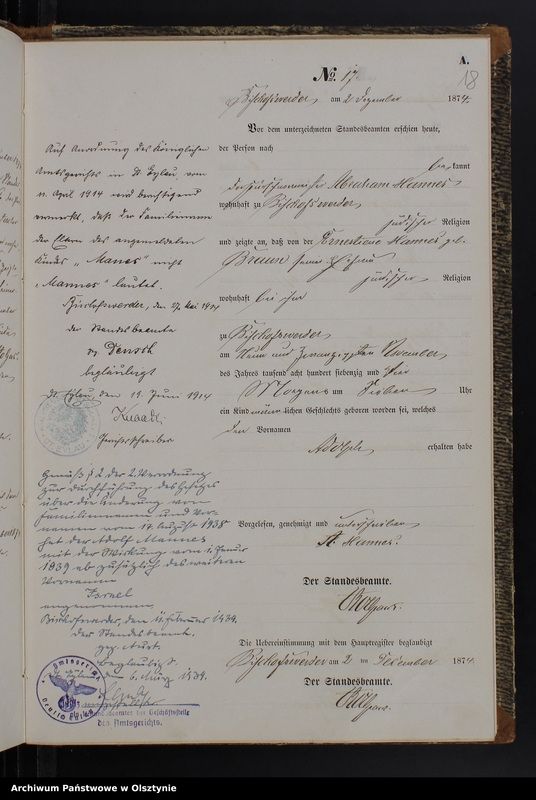 A.
18
No. 17.
Bischofswerder, am 2 Dezember 1874.
Vor dem unterzeichneten Standesbeamten erschien heute,
der Person nach
bekannt
Abraham Mannes,
wohnhaft zu Bischofswerder,
jüdischer Religion
und zeigte an, daß von der Ernestiene Mannes geb.
Braun seiner Ehefrau
jüdischer Religion
wohnhaft bei ihm
zu Bischofswerder,
am Neun und Zwanzigsten November,
des Jahres tausend acht hundert siebenzig und Vier
Morgens um Sieben Uhr
ein Kind männlichen Geschlechts geboren worden sei, welches
den Vornamen
Adolph, erhalten habe
Vorgelesen, genehmigt und unterschrieben
A. Mannes.
Der Standesbeamte.
Die Uebereinstimmung mit dem Hauptregister beglaubigt
Bischofswerder am 2 ten Dezember 1874.
Der Standesbeamte.
Auf Anordnung des Königlichen
Amtsgerichts in Dt. Eylau, vom
11. April 1914 wird berichtigend
vermerkt, daß der Familienname
der Eltern des angemeldeten
Kindes „Manes" nicht
„Mannes" lautet.
Bischofswerder, den 27. Mai 1914
der Standesbeamte
beglaubigt
Dt. Eylau, den 19. Juni 1914
Gerichtsschreiber
Gemäß § 2 der 2. Verordnung
zur Durchführung des Gesetzes
über die Änderung von
Familiennamen und Vor-
namen vom 17. August 1938
hat der Adolf Mannes
mit der Wirkung vom 1. Januar
1939 ab zusätzlich den weiteren
Vornamen
Israel
angenommen.
Bischofswerder, den 11. Februar 1939.
der Standesbeamte.
gez.
Beglaubigt.
Dt. Eylau, den 6. März 1939.
Amtsgericht
Deutsch Eylau
der Geschäftsstelle
des Amtsgerichts.
Archiwum Państwowe w Olsztynie